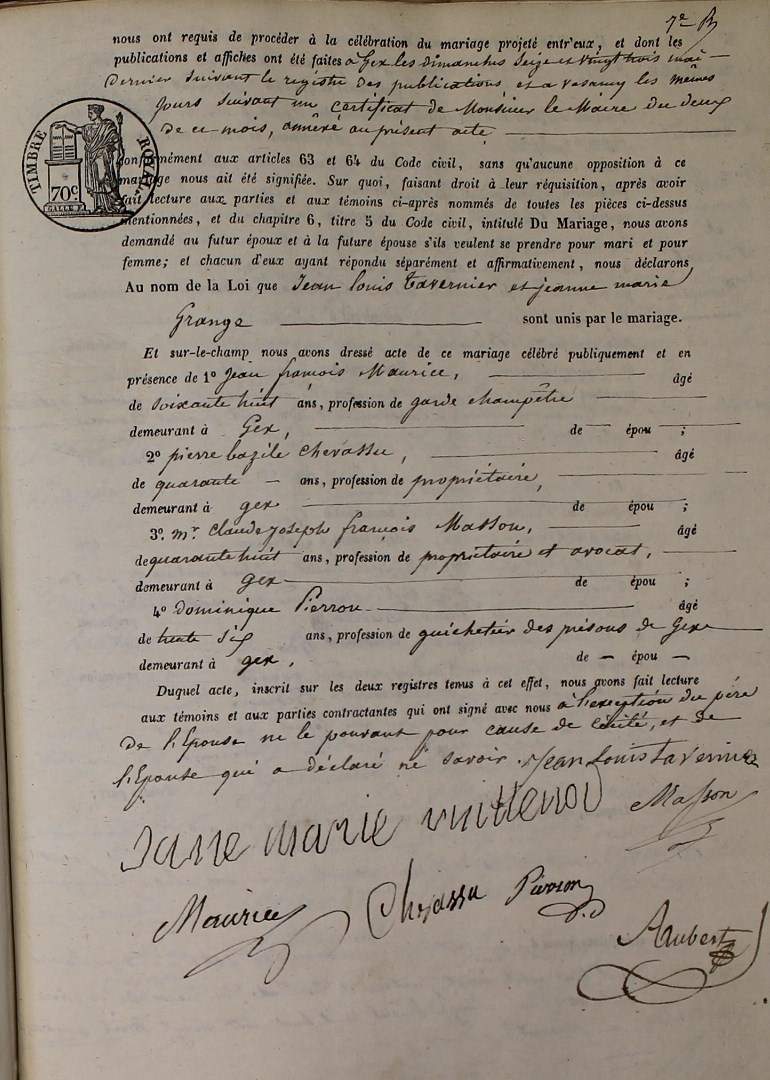 7e
nous ont requis de procéder à la célébration du mariage projeté entr'eux, et dont les
publications et affiches ont été faites à Gex les dimanches Seize et vingt trois mai
dernier suivant le registre des publications et a vesancy les mêmes
Jours suivant un certificat de Monsieur le Maire du deux
de ce mois, annéxé au présent acte
TIMBRE ROYAL
70c
conformément aux articles 63 et 64 du Code civil, sans qu'aucune opposition à ce
mariage nous ait été signifiée. Sur quoi, faisant droit à leur réquisition, après avoir
fait lecture aux parties et aux témoins ci-après nommés de toutes les pièces ci-dessus
mentionnées, et du chapitre 6, titre 5 du Code civil, intitulé Du Mariage, nous avons
demandé au futur époux et à la future épouse s'ils veulent se prendre pour mari et pour
femme; et chacun d'eux ayant répondu séparément et affirmativement, nous déclarons
Au nom de la Loi que Jean louis tavernier et jeanne marie
Grange sont unis par le mariage.
Et sur-le-champ nous avons dressé acte de ce mariage célébré publiquement et en
présence de 1º Jean françois Maurice, âgé
de soixante huit ans, profession de garde champêtre
demeurant à Gex, de épou ;
2º pierre bazile chevassu, âgé
de quarante ans, profession de propriétaire,
demeurant à gex de épou ;
3º. mr. Claude joseph françois Masson, âgé
de quarante huit ans, profession de propriétaire et avocat,
demeurant à gex de épou ;
4º Dominique Pierron âgé
de trente six ans, profession de guichetier des prisons de Gex
demeurant à gex, de épou
Duquel acte, inscrit sur les deux registres tenus à cet effet, nous avons fait lecture
aux témoins et aux parties contractantes qui ont signé avec nous à l'exception du père
de l'Epouse ne le pouvant pour cause de cécité, et de
l'Epouse qui a déclaré ne savoir. Jean Louis tavernier
Masson
marie
Maurice
Pierron
Aubert